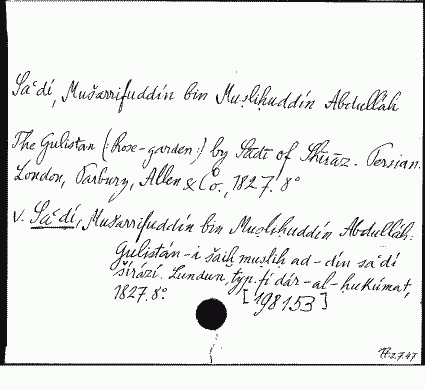 Saʿdí, Mušarrifuddín bin Muṣliḥuddín Abdulláh
The Gulistan (: Rose-garden :) by Sadī of Shīrāz. Persian.
London, Parbury, Allen & Co., 1827. 8°
v. Saʿdí, Mušarrifuddín bin Muṣliḥuddín Abdulláh:
Gulistán-i šaiḫ muṣliḥ ad-dín saʿdí
šírází. Lundun, typ. fí dár-al-ḥukúmat,
1827. 8°. [198153]
2.7.47